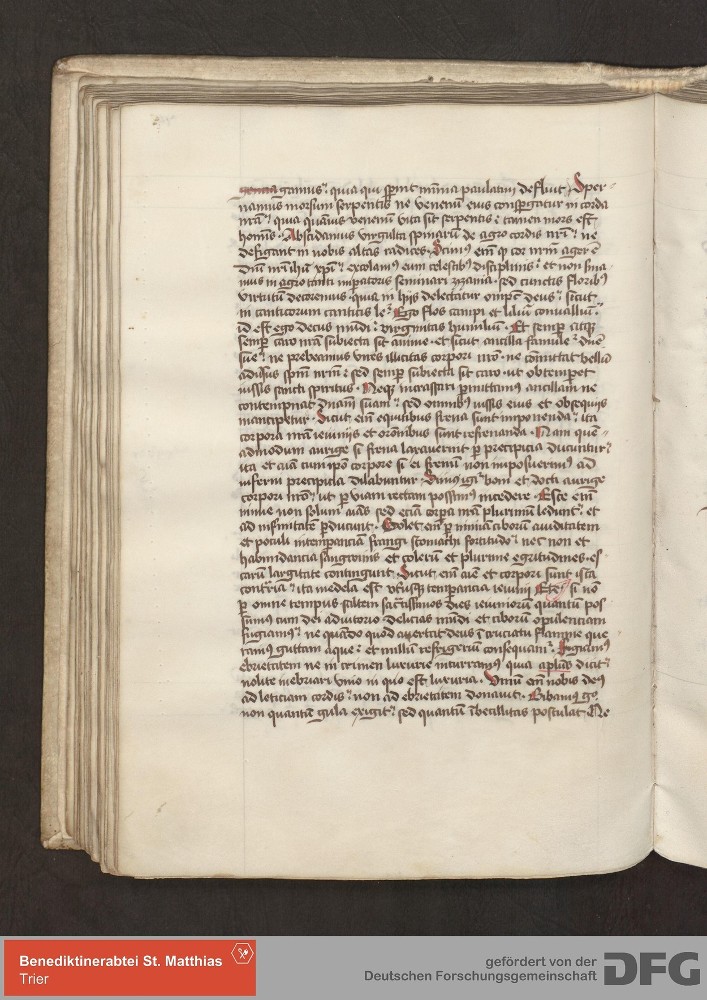 gamus: quia qui spernit minima paulatim defluit. Sper-
namus morsum serpentis ne venenū eius conspergatur in corda
nrā: quia quāuis venenū vita sit serpentis: tamen mors est
homis. Abscidamus virgulta spinarū de agro cordis nrī: ne
defigant in nobis altas radices. Scimus em̄ cor nrm ager ē
dnī nrī ihū xpī: excolamus eum celestibꝰ disciplinis: et non sina
mus in agro tanti imperatoris seminari zizania. sed cunctis floribꝰ
virtutū decoremus. quia in hijs delectatur omps deus: sicut
in canticorum canticis le: Ego flos campi et liliū conualliū:
id est ego decus mūdi: virginitas humiliū. Et semper
semper caro nrā subiecta sit anime. et sicut ancilla famule dnē
sue: ne prebeamus vires illicitas corpori nrō. ne cōmittat bellū
adūsus spm nrm: sed semper subiecta sit caro. ut obtemperet
iussis sancti spiritus. Neqꝫ incrassari pmittamꝰ ancillam ne
contempnat dnam suam: sed omnibꝰ iussis eius et obsequijs
mancipetur. Sicut em̄ equitibus frena sunt imponenda: ita
corpora nrā ieiunijs et orōnibus sunt refrenanda. Nam quē-
admodum aurige si frena laxauerint p precipicia ducuntur:
ita et aīa cum ipō corpore si ei frenū non imposuerimꝰ ad
inferni precipicia dilabuntur. Simus igr boni et docti aurige
corpori nrō: ut p viam rectam possimꝰ incedere. Esce em̄
nimie non solum aīas sed eciā corpa nrā plurimū ledunt: et
ad infirmitatē pducunt. Solet em̄ p nimiā ciborū auiditatem
et poculi intemperanciā frangi stomachi fortitudo: nec non et
habundancia sanguinis et colerū et plurime egritudines. es
carū largitate contingunt. Sicut em̄ aīe et corpori sunt ista
contrria: ita medela est vtrisqꝫ temperancia ieiunij si nō
p omne tempus saltem sacrtissimos dies ieiuniorū quantū pos
sumꝰ cum dei adiutorio delicias mūdi et ciborū opulenciam
fugiamꝰ: ne quādo quod auertat deus ī cruciatu flamme que
ramꝰ guttam aque: et nullū refrigeriū consequamr. Fugiamꝰ
ebrietatem ne in crimen luxurie incurramꝰ quia aplus dicit:
nolite inebriari vino in quo est luxuria. Vinum em̄ nobis deꝰ
ad leticiam cordis: non ad ebrietatem donauit. Bibamꝰ go
non quantū gula exigit: sed quantū ībecillitas postulat. Ne
Benediktinerabtei St. Matthias
Trier
gefördert von der
Deutschen Forschungsgemeinschaft
DFG